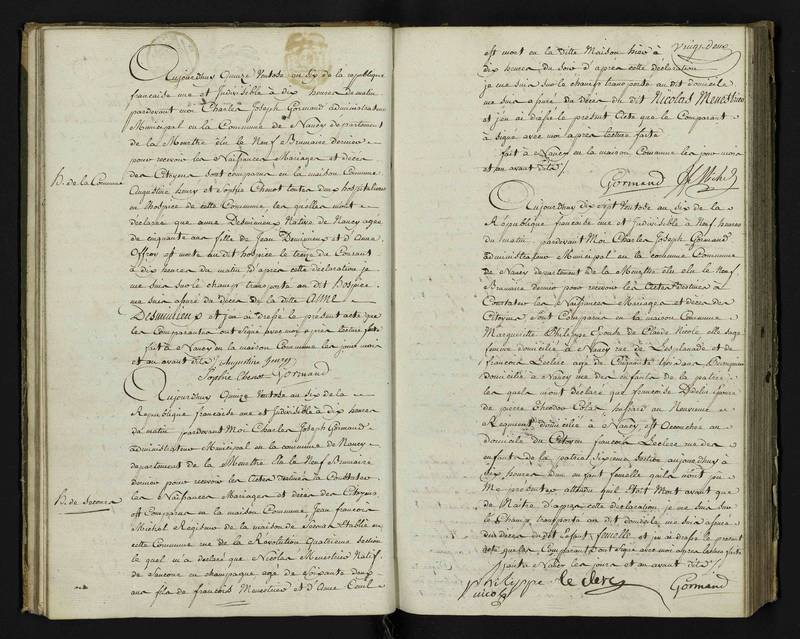 Aujourdhuy Quinze Ventose an Six de la republique
francaise une et Indivisible à dix heures du matin
pardevant moi Charles Joseph Gormand administrateur
Municipal en la Commune de Nancy departement
de la Meurthe élu le Neuf Brumaire dernier
pour recevoir les Naissances Mariages et décès
des Citoyens sont comparus en la maison Commune
H. de la Commune
Augustine henry et Sophie Chenot toutes deux hospitalieres
en l'hospice de cette Commune les quelles m'ont
declaré que anne Native de Nancy agée
de cinquante ans fille de Jean et d'Anne
est morte au dit hospice le treize du Courant
à dix heures du matin d'apres cette déclaration je
me suis sur le champ transporté au dit hospice
me suis assuré du décès de la ditte Anne
et j'ai dressé le présent acte que
les Comparantes ont signé avec moi après lecture faite
fait à Nancy en la maison Commune les jour mois
et an avant dits /. Augustine henry
Sophie Chenot Gormand
Aujourdhuy Quinze Ventose an Six de la
Republique francaise une et Indivisible à dix heures
du matin pardevant Moi Charles Joseph Gormand
administrateur Municipal en la commune de Nancy
departement de la Meurthe élu le Neuf Brumaire
dernier pour recevoir les actes destinés à Constater
H. de Secours
les Naissances Mariages et décès des Citoyens
est Comparu en la maison Commune, Jean francois
Michel Regisseur de la maison de Secours Etablie en
cette Commune rue de la Révolution quatrieme section
le quel m'a declaré que Nicolas Menestrier Natif
de en champagne agé de Soixante deux
ans fils de francois Menestrier et d'Anne
est mort en la ditte Maison hier à
dix heures du soir d'apres cette déclaration
je me suis sur le champ transporté au dit domicile
me suis assuré du décès du dit Nicolas Menestrier
et j'ai dressé le présent acte que le Comparant
a signé avec moi apres lecture faite
fait à Nancy en la maison Commune les jour mois
et an avant dits /.
Gormand
Aujourdhuy dix sept Ventose an Six de la
République francaise une et Indivisible à Neuf heures
du matin pardevant Moi Charles Joseph Gormand
administrateur Municipal en la commune Commune
de Nancy departement de la Meurthe élu le Neuf
Brumaire dernier pour recevoir les actes destinés à
Constater les Naissances Mariages et décès des
Citoyens sont Comparus en la maison Commune
Marguerite Philippe Epouse de Claude Nicole elle sage
femme domiciliée à Nancy rue de L'esplanade et de
francois Leclerc agé de Cinquante trois ans
domicilié à Nancy rue des enfants de la patrie
les quels m'ont déclaré que francoise Epouse
de pierre Colas hussard au Neuvieme
Regiment domiciliée à Nancy est Accouchée au
domicile du Citoyen francois Leclerc rue des
enfants de la patrie Sixieme Section aujourdhuy à
Six heures d'un enfant femelle qu'ils n'ont pu
Me présenter attendu qu'il Etoit Mort avant que
de Naitre d'apres cette declaration je me suis sur
le Champ transporté au dit domicile me suis assuré
du décès du dit Enfant femelle et j'ai drassé le présent
acte que les Comparants ont signé avec moi apres lecture faite
fait à Nancy les jours et an avant dits /.
philippe le clerc Gormand
nicole